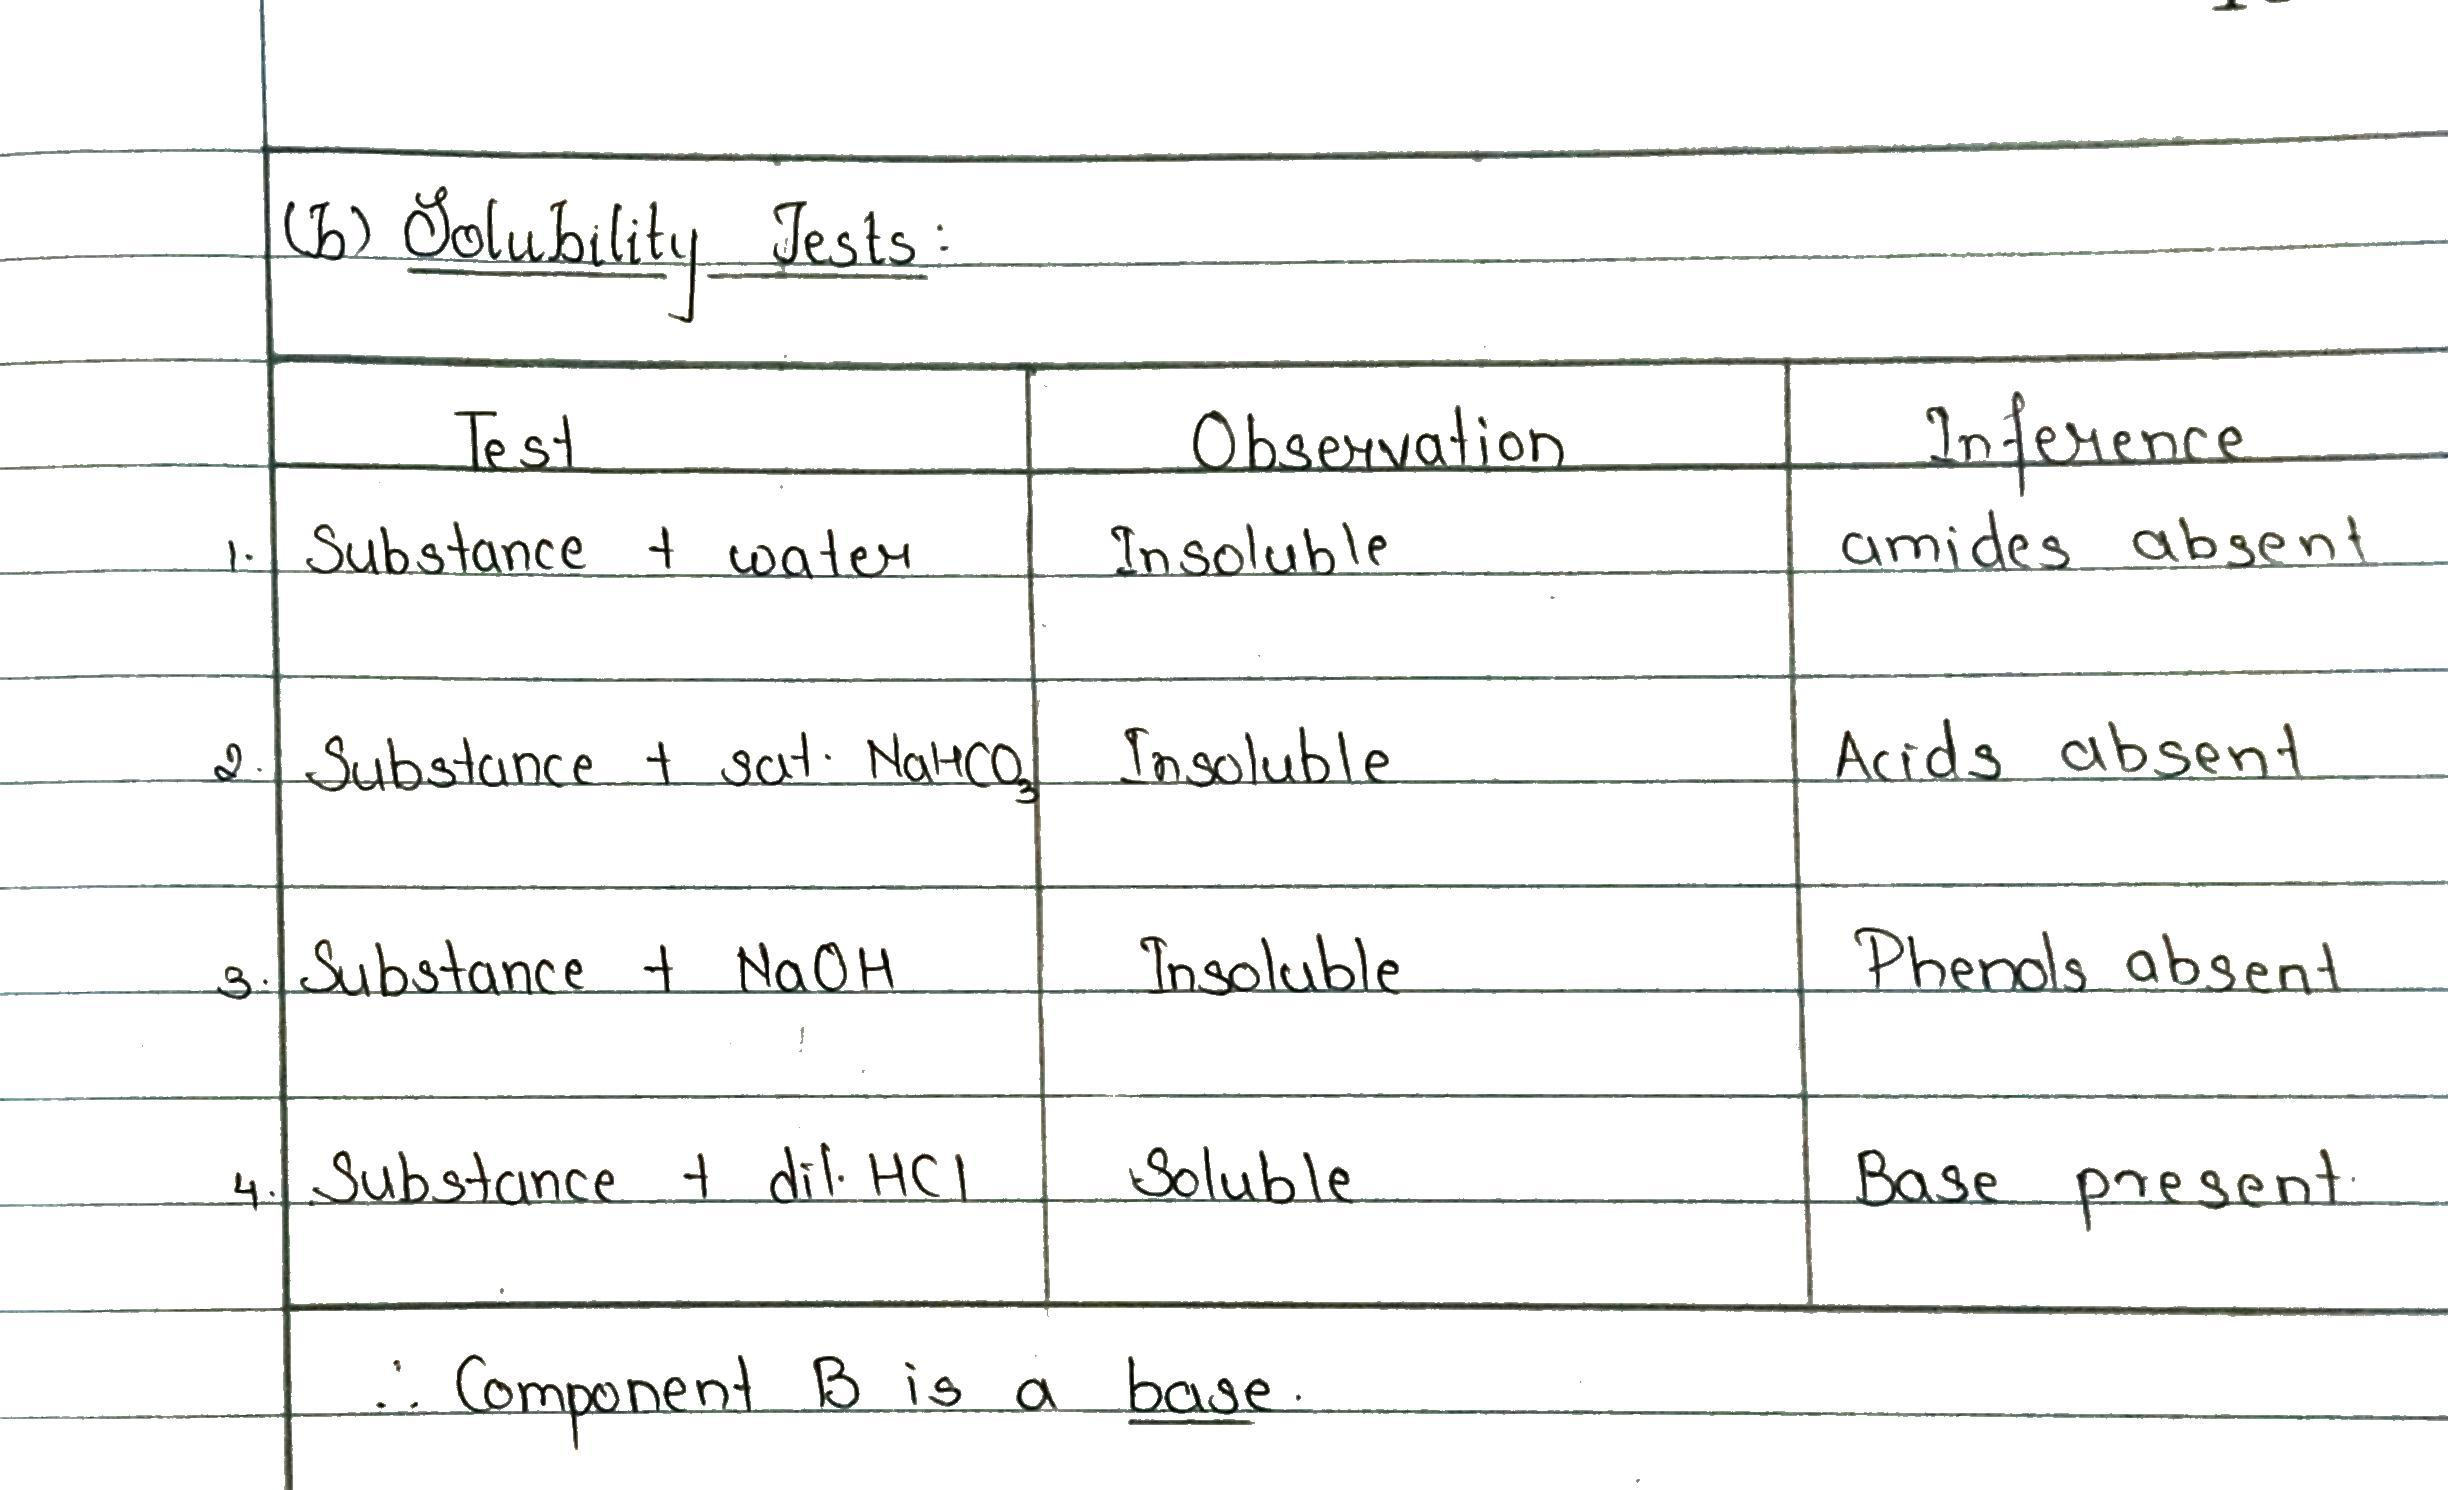 (b) Solubility Tests:
Test Observation Inference
1. Substance + water Insoluble amides absent
2. Substance + sat. NaHCO3 Insoluble Acids absent
3. Substance + NaOH Insoluble Phenols absent
4. Substance + dil. HCl Soluble Base present.
∴ Component B is a base.